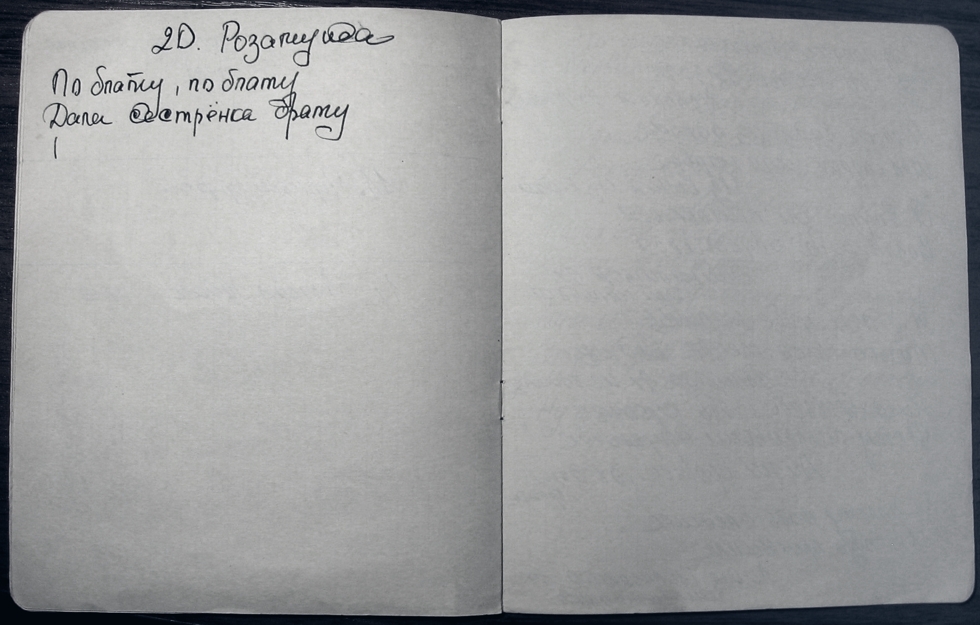 20. Розамунда
По блату, по блату
Дала сестрёнка брату